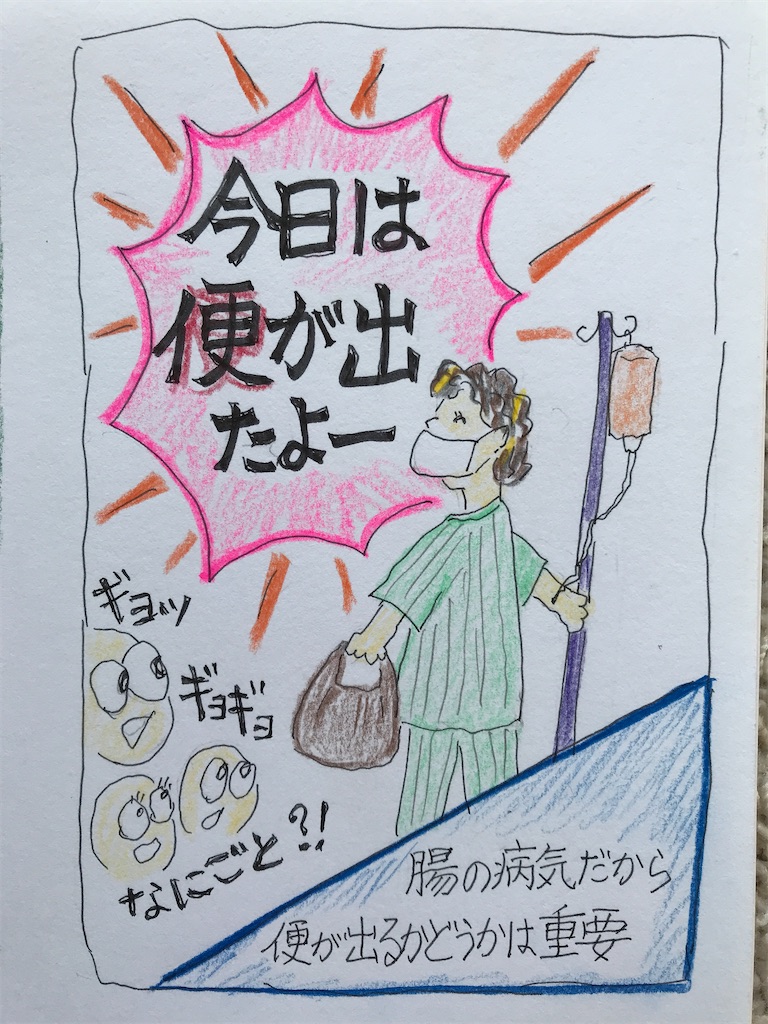 今日は
便が出
たよー
ギョッ
ギョギョ
なにごと?!
腸の病気だから
便が出るかどうかは重要